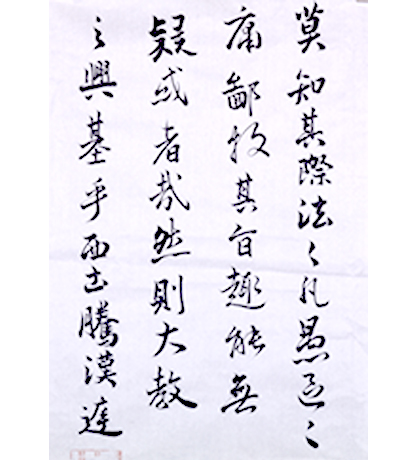 莫知其際法〻凡愚區〻
庸鄙投其旨趣能無
疑或者哉然則大教
之興基乎西土騰漢庭